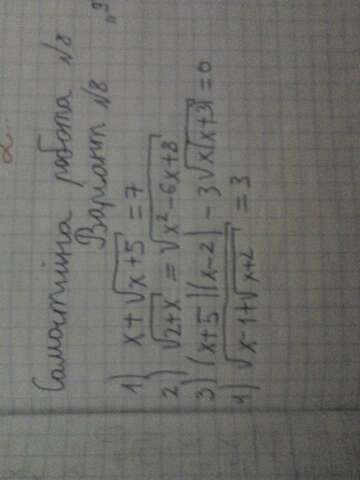 Самостійна работа №8
Вариант №8
1) x+√x+5 = 7
2) √2+x = √x²-6x+8
3) (x+5)(x-2) - 3√x(x+3) = 0
4) √x-1+√x+2 = 3